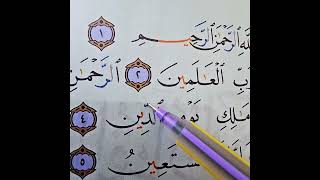 ٱللَّهِ ٱلرَّحْمَٰنِ ٱلرَّحِيمِ ١
ٱلْعَٰلَمِينَ ٢ ٱلرَّحْمَٰنِ
مَٰلِكِ يَوْمِ ٱلدِّينِ ٤
نَسْتَعِينُ ٥